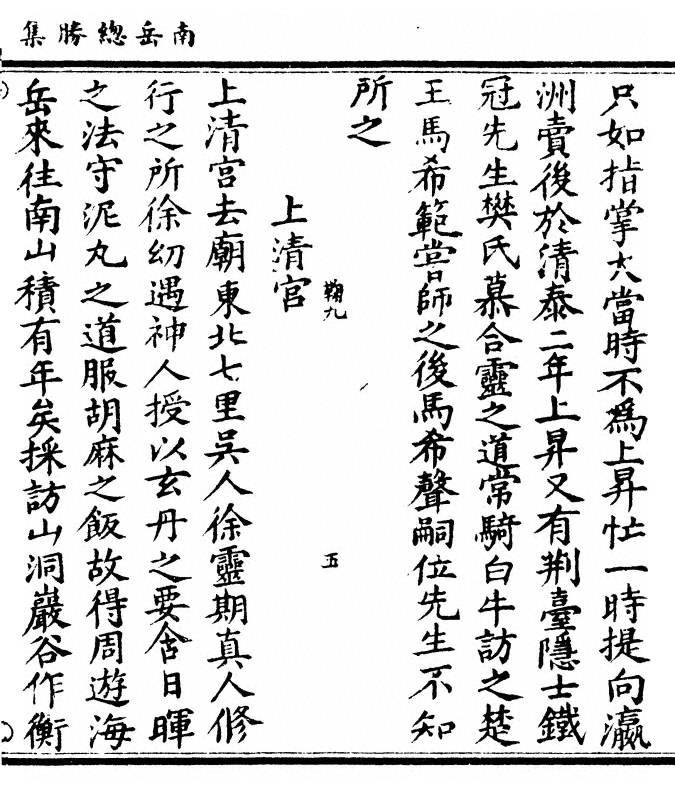 南岳總勝集
只如指掌大當時不爲上昇忙一時提向瀛
洲賣後於清泰二年上昇又有荆臺隱士鐵
冠先生樊氏慕合靈之道常騎白牛訪之楚
王馬希範嘗師之後馬希聲嗣位先生不知
所之
鞠九
五
上清宫
上清宫去廟東北七里吳人徐靈期真人修
行之所徐幼遇神人授以玄丹之要含日暉
之法守泥丸之道服胡麻之飯故得周遊海
岳來往南山積有年矣採訪山洞巖谷作衡